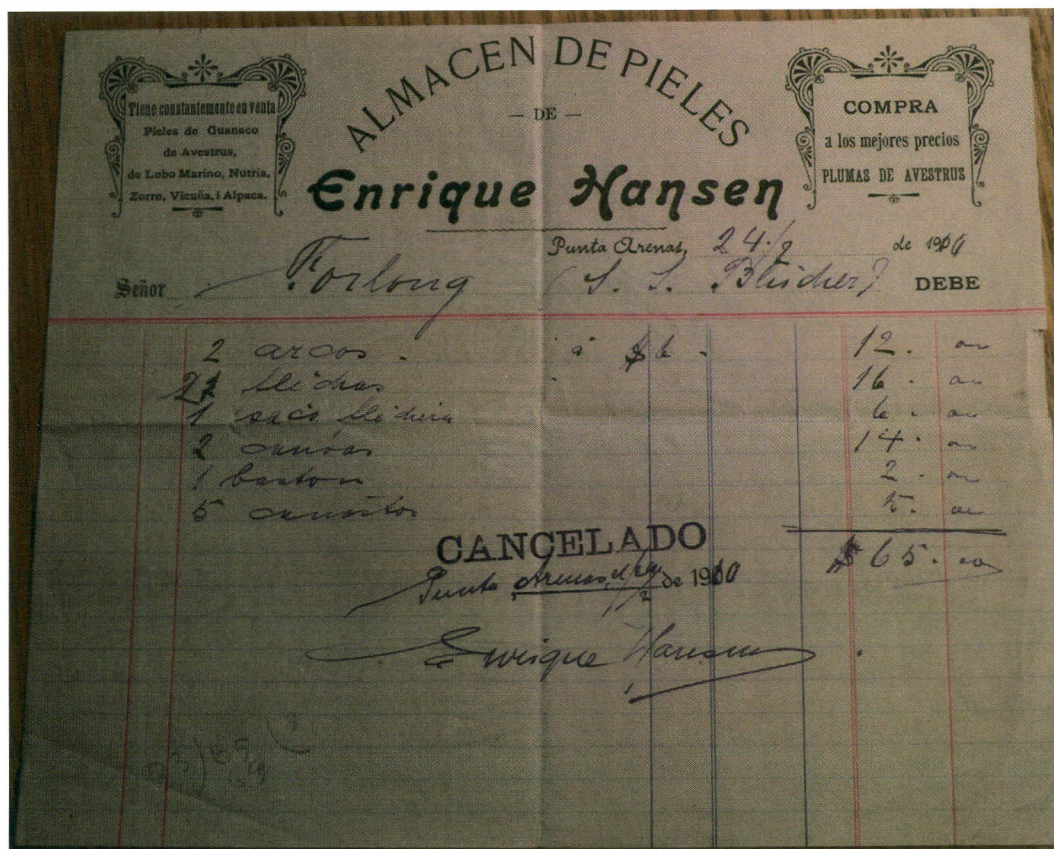 Tiene constantemente en venta
Pieles de Guanaco
de Avestrus,
de Lobo Marino, Nutria,
Zorro, Vicuña, i Alpaca.
ALMACEN DE PIELES
— DE —
Enrique Hansen
COMPRA
a los mejores precios
PLUMAS DE AVESTRUS
Punta Arenas, 24/2 de 1910
Señor Forlong (S. S. Blücher) DEBE
2 arcos . á $ 6 . 12. oo
flechas 16. oo
1 saco 6. oo
2 canóas 14. oo
1 baston 2. oo
5 canastos 5. oo
$ 65. oo
CANCELADO
Punta Arenas, de 1910
Enrique Hansen